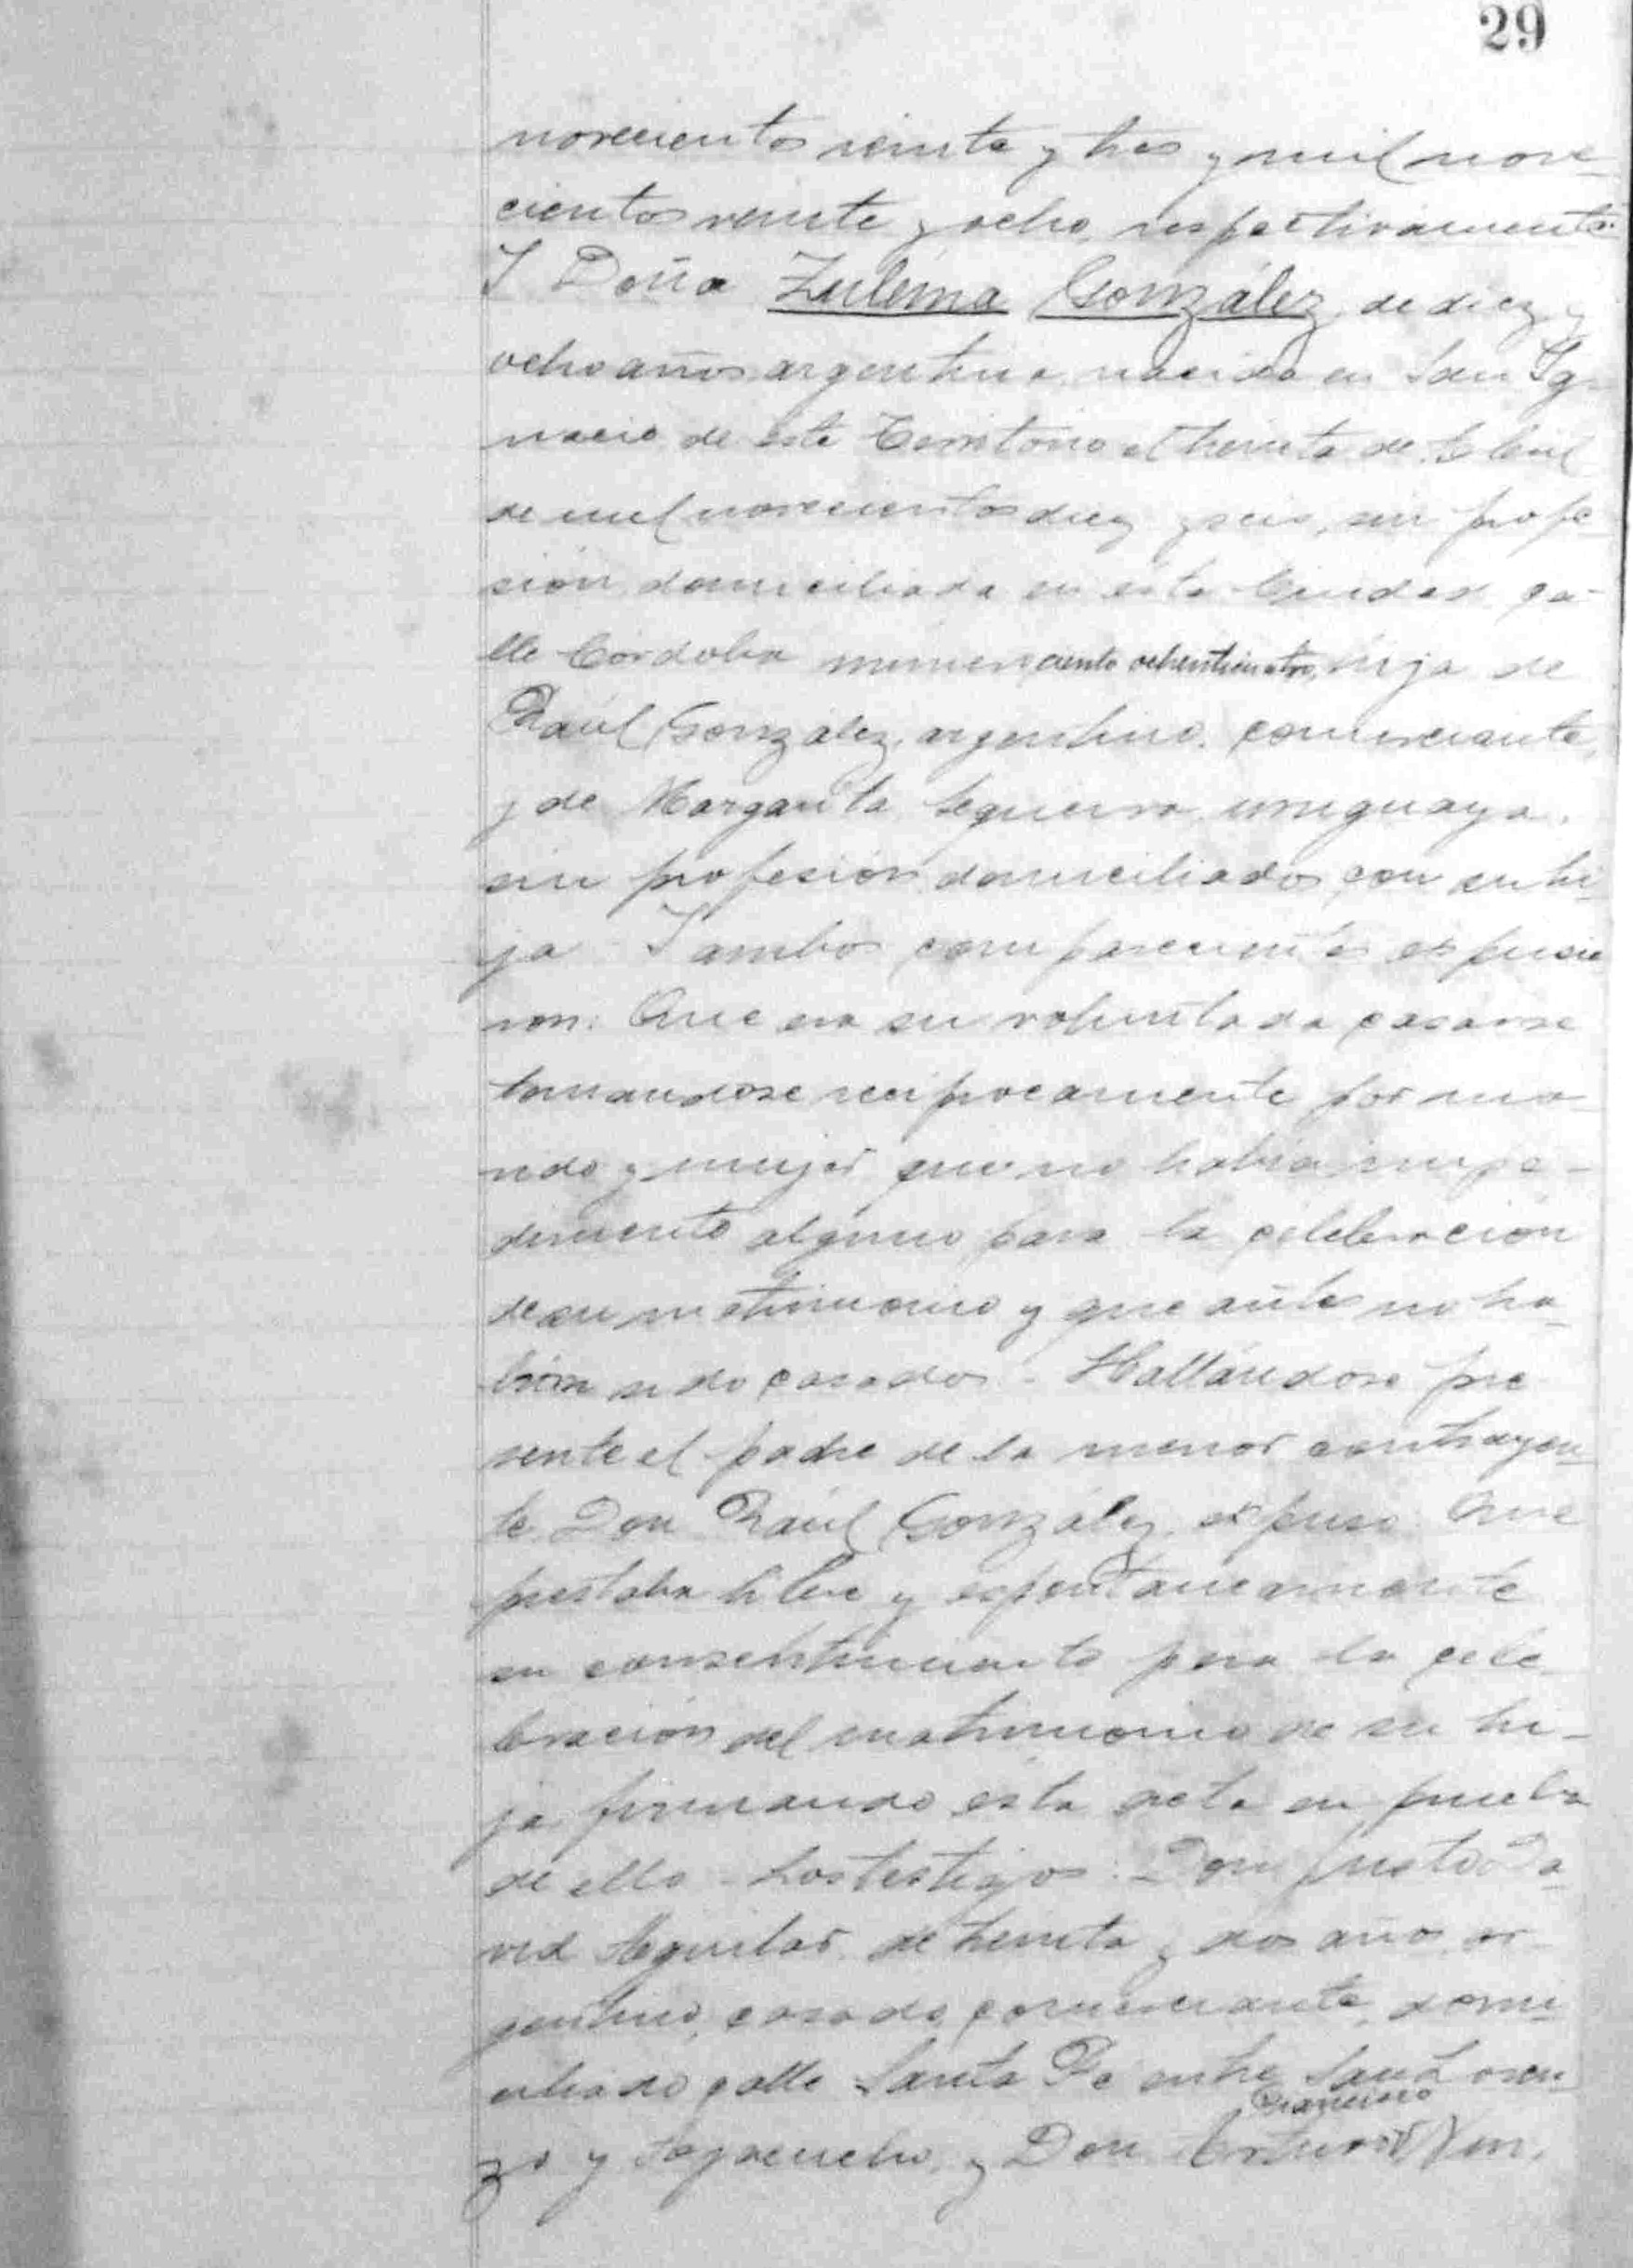 29
novecientos veinte y tres y mil nove-
cientos veinte y ocho, respectivamente.
Y Doña Zulema González, de diez y
ocho años, argentina, nacida en San Ig-
nacio de este Territorio el treinta de Abril
de mil novecientos diez y seis, sin profe-
sión, domiciliada en esta Ciudad ca-
lle Córdoba número ciento ochenticuatro, hija de
Raúl González, argentino, comerciante,
y de Margarita Sequeira, uruguaya,
sin profesión, domiciliados con su hi-
ja - Y ambos comparecientes expusie
ron: Que era su voluntada casarse
tomandose reciprocamente por ma-
rido y mujer que no habia impe-
dimento alguno para la celebración
de su matrimonio y que antes no ha-
bian sido casados - Hallándose pre
sente el padre de la menor contrayen-
te Don Raúl González, expuso: Que
prestaba libre y espontaneamente
su consentimiento para la cele
bración del matrimonio de su hi-
ja, firmando esta acta en prueba
de ello - Los testigos: Don Justo Da-
vid Aguilar, de treinta y dos años, ar-
gentino, casado, comerciante, domi-
ciliado calle Santa Fe entre San Loren-
Francisco
zo y Ayacucho, y Don Arturo